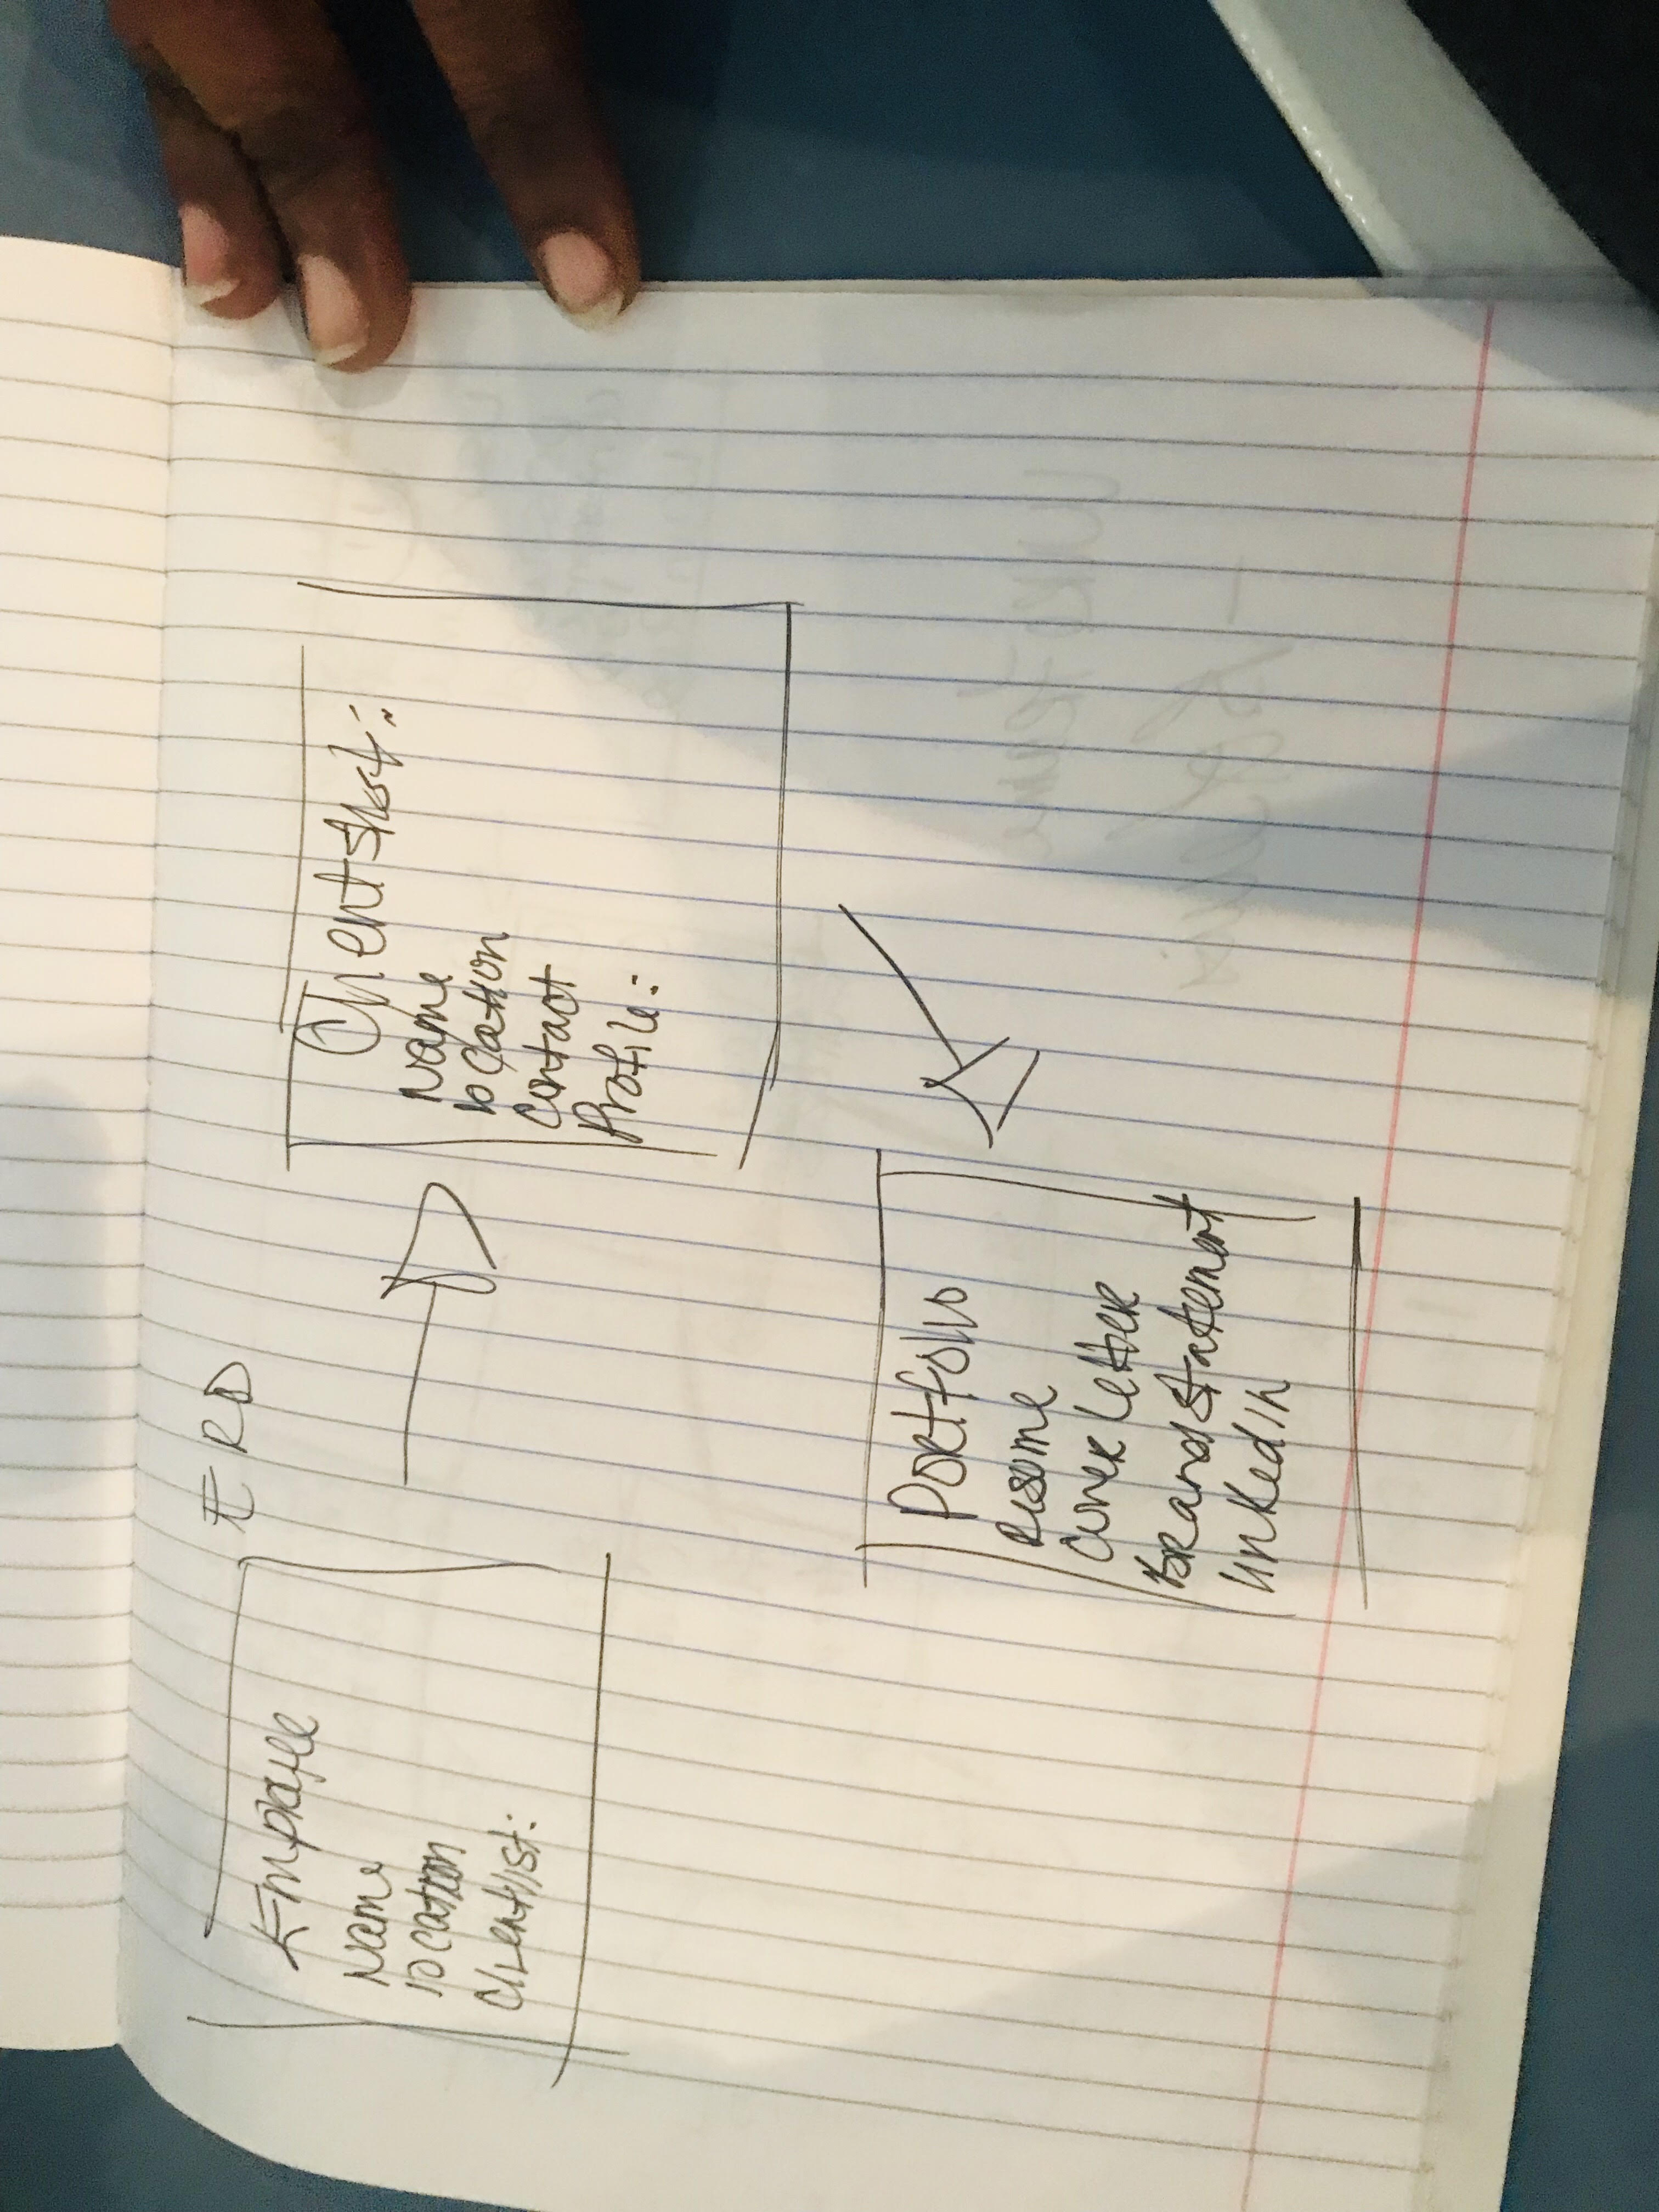 ERD
Employee
Name
location
Clientlist:
Clientslist:
Name
location
contact
Profile:
Portfolio
resome
cover letter
Brand statement
linkedin